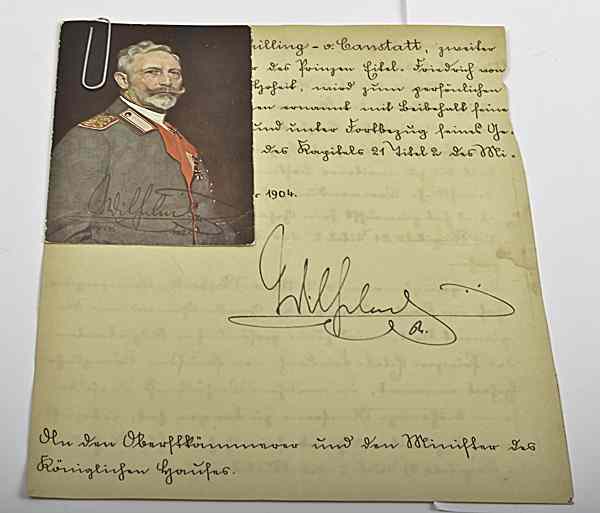 Wilhelm
illing - v. Canstatt, zweiter
r des Prinzen Eitel-Friedrich von
Hoheit, wird zum persönlichen
en ernannt mit Beibehalt seine
und unter Fortbezug seines Ge-
des Kapitels 21 Titel 2 des Mi-
r 1904.
Wilhelm
R.
An den Oberstkämmerer und den Minister des
Königlichen Hauses.